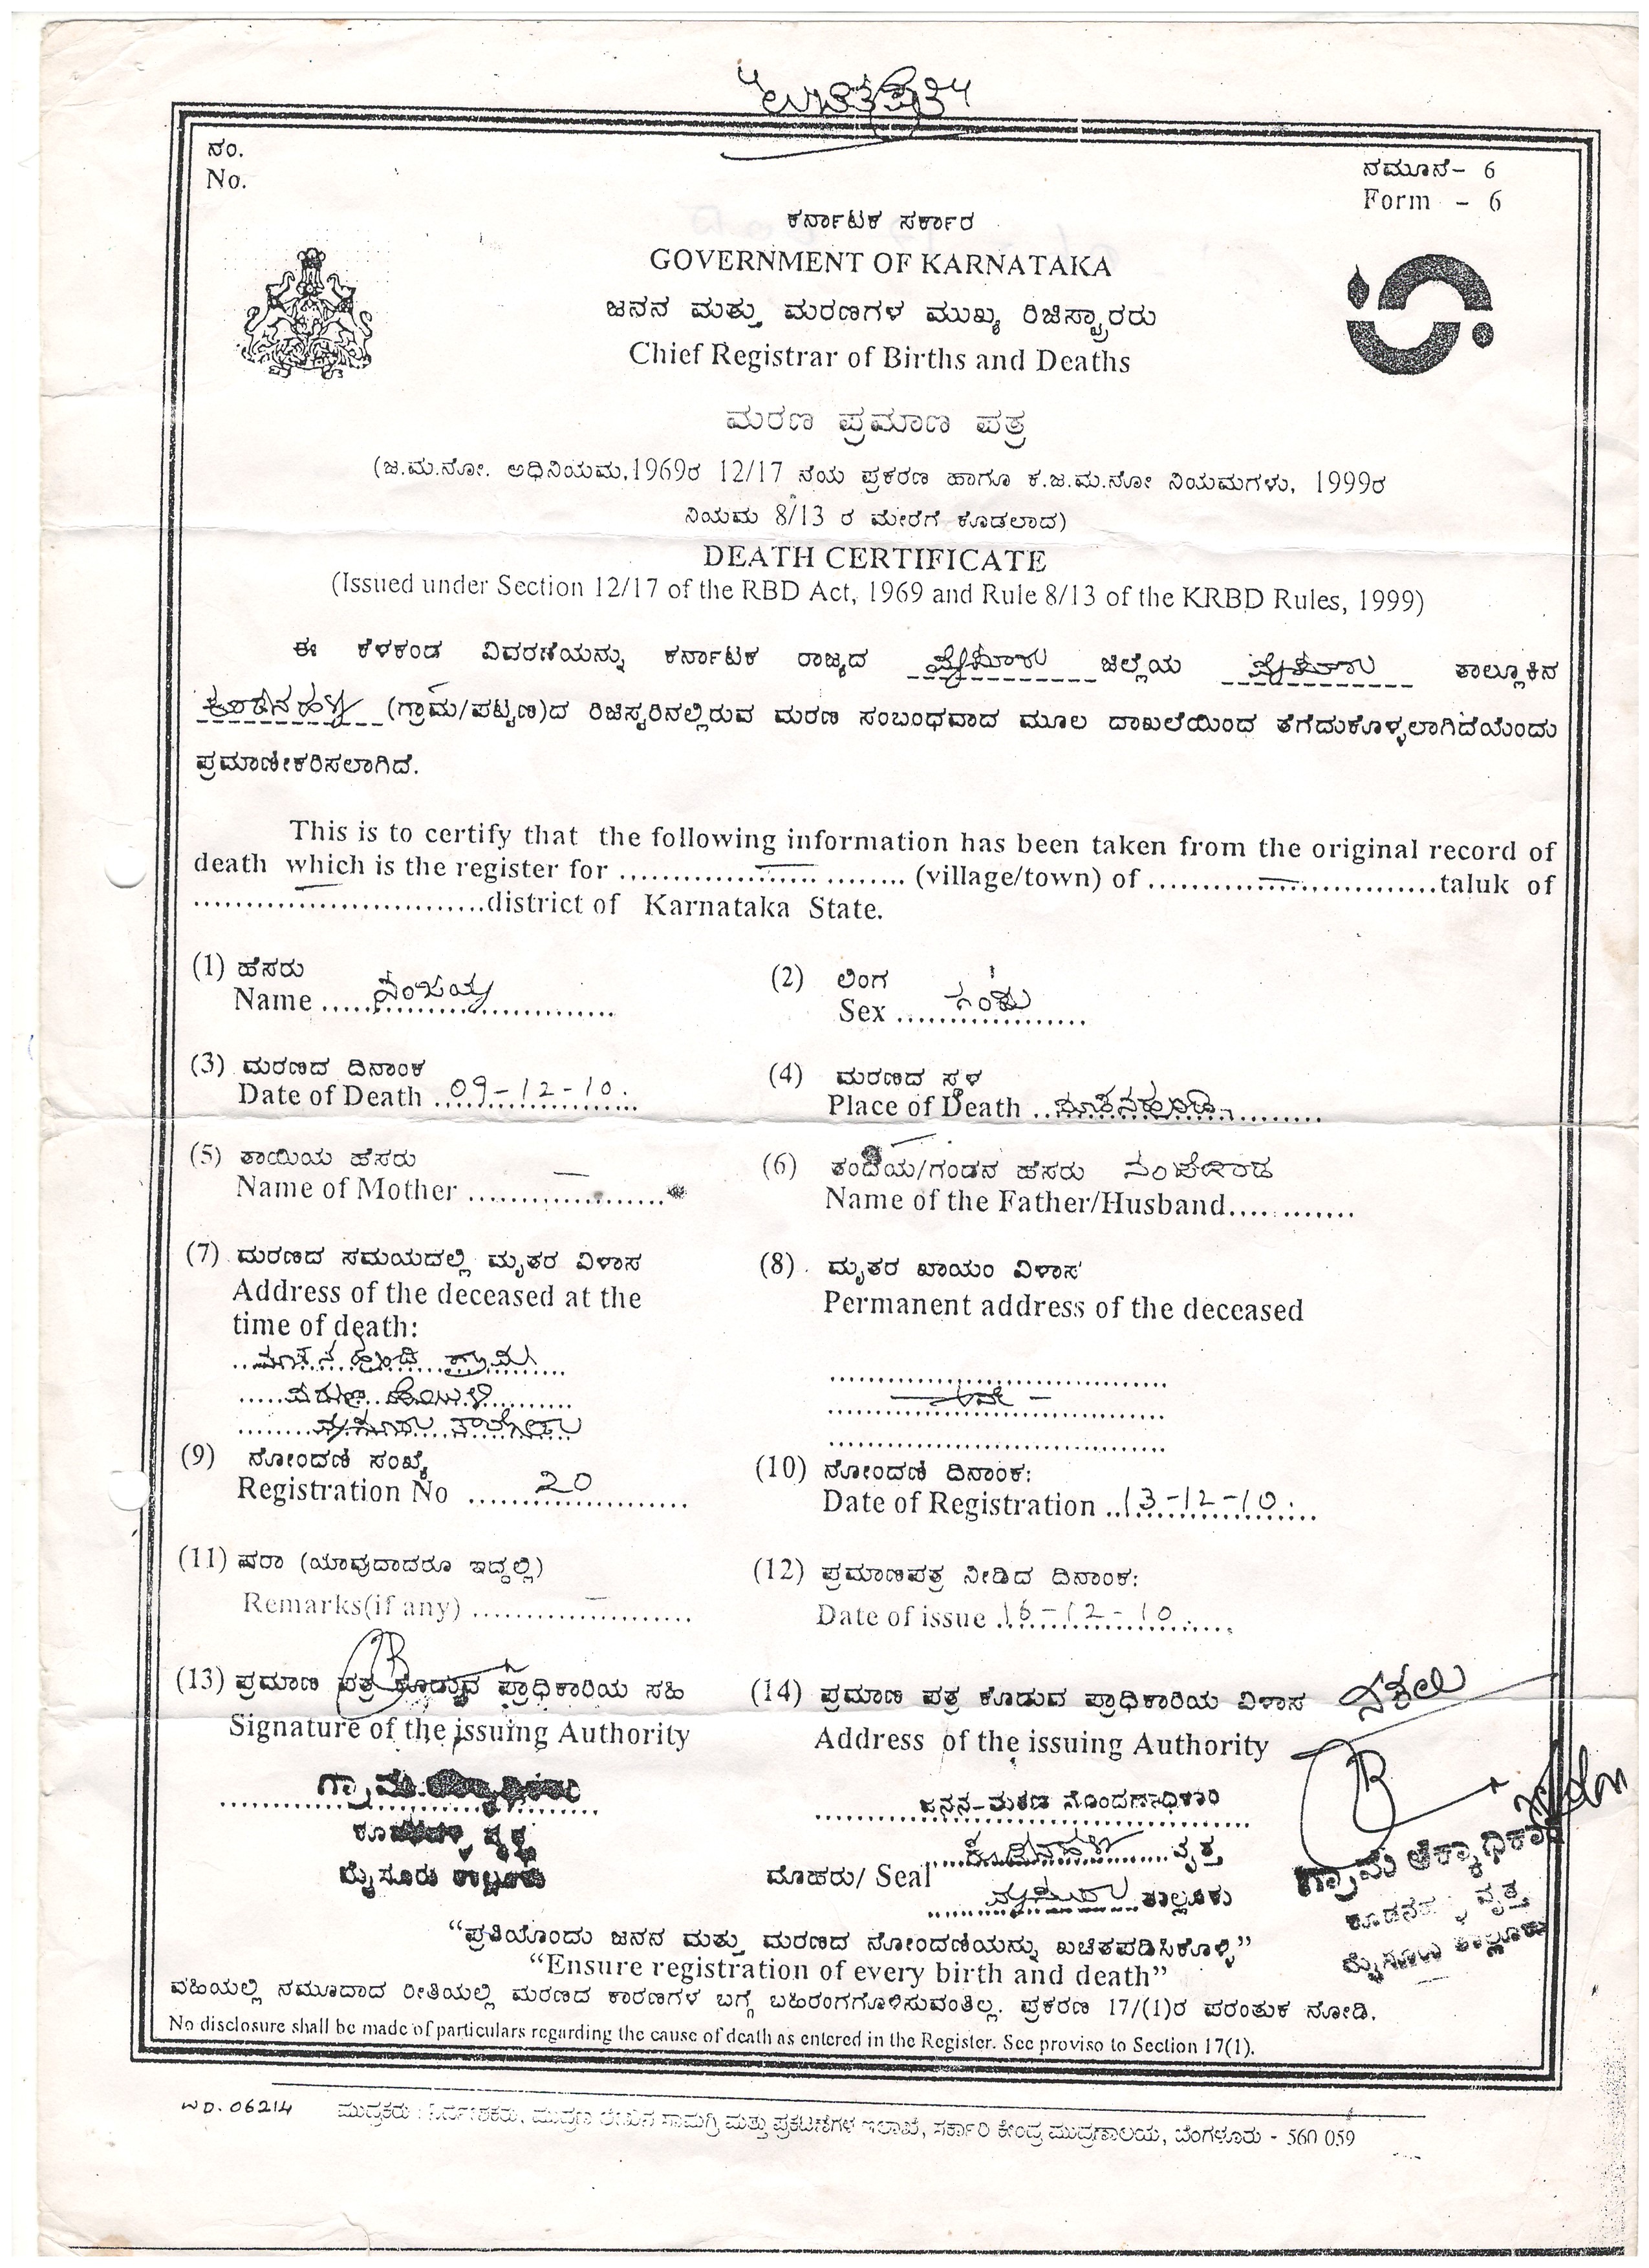 "ಉಚಿತಪ್ರತಿ"
ನಂ.
No.
ನಮೂನೆ- 6
Form - 6
ಕರ್ನಾಟಕ ಸರ್ಕಾರ
GOVERNMENT OF KARNATAKA
ಜನನ ಮತ್ತು ಮರಣಗಳ ಮುಖ್ಯ ರಿಜಿಸ್ಟ್ರಾರರು
Chief Registrar of Births and Deaths
ಮರಣ ಪ್ರಮಾಣ ಪತ್ರ
(ಜ.ಮ.ನೋ. ಅಧಿನಿಯಮ,1969ರ 12/17 ನೆಯ ಪ್ರಕರಣ ಹಾಗೂ ಕ.ಜ.ಮ.ನೋ ನಿಯಮಗಳು, 1999ರ
ನಿಯಮ 8/13 ರ ಮೇರೆಗೆ ಕೊಡಲಾದ)
DEATH CERTIFICATE
(Issued under Section 12/17 of the RBD Act, 1969 and Rule 8/13 of the KRBD Rules, 1999)
ಈ ಕೆಳಕಂಡ ವಿವರಣೆಯನ್ನು ಕರ್ನಾಟಕ ರಾಜ್ಯದ ಮೈಸೂರು ಜಿಲ್ಲೆಯ ಮೈಸೂರು ತಾಲ್ಲೂಕಿನ
ಕೂಡನಹಳ್ಳಿ (ಗ್ರಾಮ/ಪಟ್ಟಣ)ದ ರಿಜಿಸ್ಟರಿನಲ್ಲಿರುವ ಮರಣ ಸಂಬಂಧವಾದ ಮೂಲ ದಾಖಲೆಯಿಂದ ತೆಗೆದುಕೊಳ್ಳಲಾಗಿದೆಯೆಂದು
ಪ್ರಮಾಣೀಕರಿಸಲಾಗಿದೆ.
This is to certify that the following information has been taken from the original record of
death which is the register for ........................... (village/town) of ...........................taluk of
...........................district of Karnataka State.
(1) ಹೆಸರು
Name
(2) ಲಿಂಗ
Sex ಗಂಡು
(3) ಮರಣದ ದಿನಾಂಕ
Date of Death 09-12-10.
(4) ಮರಣದ ಸ್ಥಳ
Place of Death
(5) ತಾಯಿಯ ಹೆಸರು
Name of Mother —
(6) ತಂದೆಯ/ಗಂಡನ ಹೆಸರು
Name of the Father/Husband............
(7) ಮರಣದ ಸಮಯದಲ್ಲಿ ಮೃತರ ವಿಳಾಸ
Address of the deceased at the
time of death:
ಗ್ರಾಮ
ವರುಣ ಹೋಬಳಿ
ಮೈಸೂರು ತಾಲ್ಲೋಕು
(8) ಮೃತರ ಖಾಯಂ ವಿಳಾಸ
Permanent address of the deceased
(9) ನೋಂದಣಿ ಸಂಖ್ಯೆ
Registration No 20
(10) ನೋಂದಣಿ ದಿನಾಂಕ:
Date of Registration 13-12-10.
(11) ಷರಾ (ಯಾವುದಾದರೂ ಇದ್ದಲ್ಲಿ)
Remarks(if any) —
(12) ಪ್ರಮಾಣಪತ್ರ ನೀಡಿದ ದಿನಾಂಕ:
Date of issue 16-12-10.
(13) ಪ್ರಮಾಣ ಪತ್ರ ಕೊಡುವ ಪ್ರಾಧಿಕಾರಿಯ ಸಹಿ
Signature of the issuing Authority
(14) ಪ್ರಮಾಣ ಪತ್ರ ಕೊಡುವ ಪ್ರಾಧಿಕಾರಿಯ ವಿಳಾಸ
Address of the issuing Authority
ನಕಲು
ಗ್ರಾಮ
ವೃತ್ತ
ಮೈಸೂರು ತಾಲ್ಲೂಕು
ಜನನ-ಮರಣ ನೊಂದಣಾಧಿಕಾರಿ
ಕೂಡನಹಳ್ಳಿ ವೃತ್ತ
ಮೊಹರು/ Seal
ಮೈಸೂರು ತಾಲ್ಲೂಕು
ಗ್ರಾಮ ಲೆಕ್ಕಾಧಿಕಾರಿ
ಕೂಡನಹಳ್ಳಿ ವೃತ್ತ
ಮೈಸೂರು ತಾಲ್ಲೂಕು
"ಪ್ರತಿಯೊಂದು ಜನನ ಮತ್ತು ಮರಣದ ನೋಂದಣಿಯನ್ನು ಖಚಿತಪಡಿಸಿಕೊಳ್ಳಿ"
"Ensure registration of every birth and death"
ವಹಿಯಲ್ಲಿ ನಮೂದಾದ ರೀತಿಯಲ್ಲಿ ಮರಣದ ಕಾರಣಗಳ ಬಗ್ಗೆ ಬಹಿರಂಗಗೊಳಿಸುವಂತಿಲ್ಲ. ಪ್ರಕರಣ 17/(1)ರ ಪರಂತುಕ ನೋಡಿ.
No disclosure shall be made of particulars regarding the cause of death as entered in the Register. See proviso to Section 17(1).
WD. 06214
ಮುದ್ರಕರು : ನಿರ್ದೇಶಕರು, ಮುದ್ರಣ ಲೇಖನ ಸಾಮಗ್ರಿ ಮತ್ತು ಪ್ರಕಟಣೆಗಳ ಇಲಾಖೆ, ಸರ್ಕಾರಿ ಕೇಂದ್ರ ಮುದ್ರಣಾಲಯ, ಬೆಂಗಳೂರು - 560 059